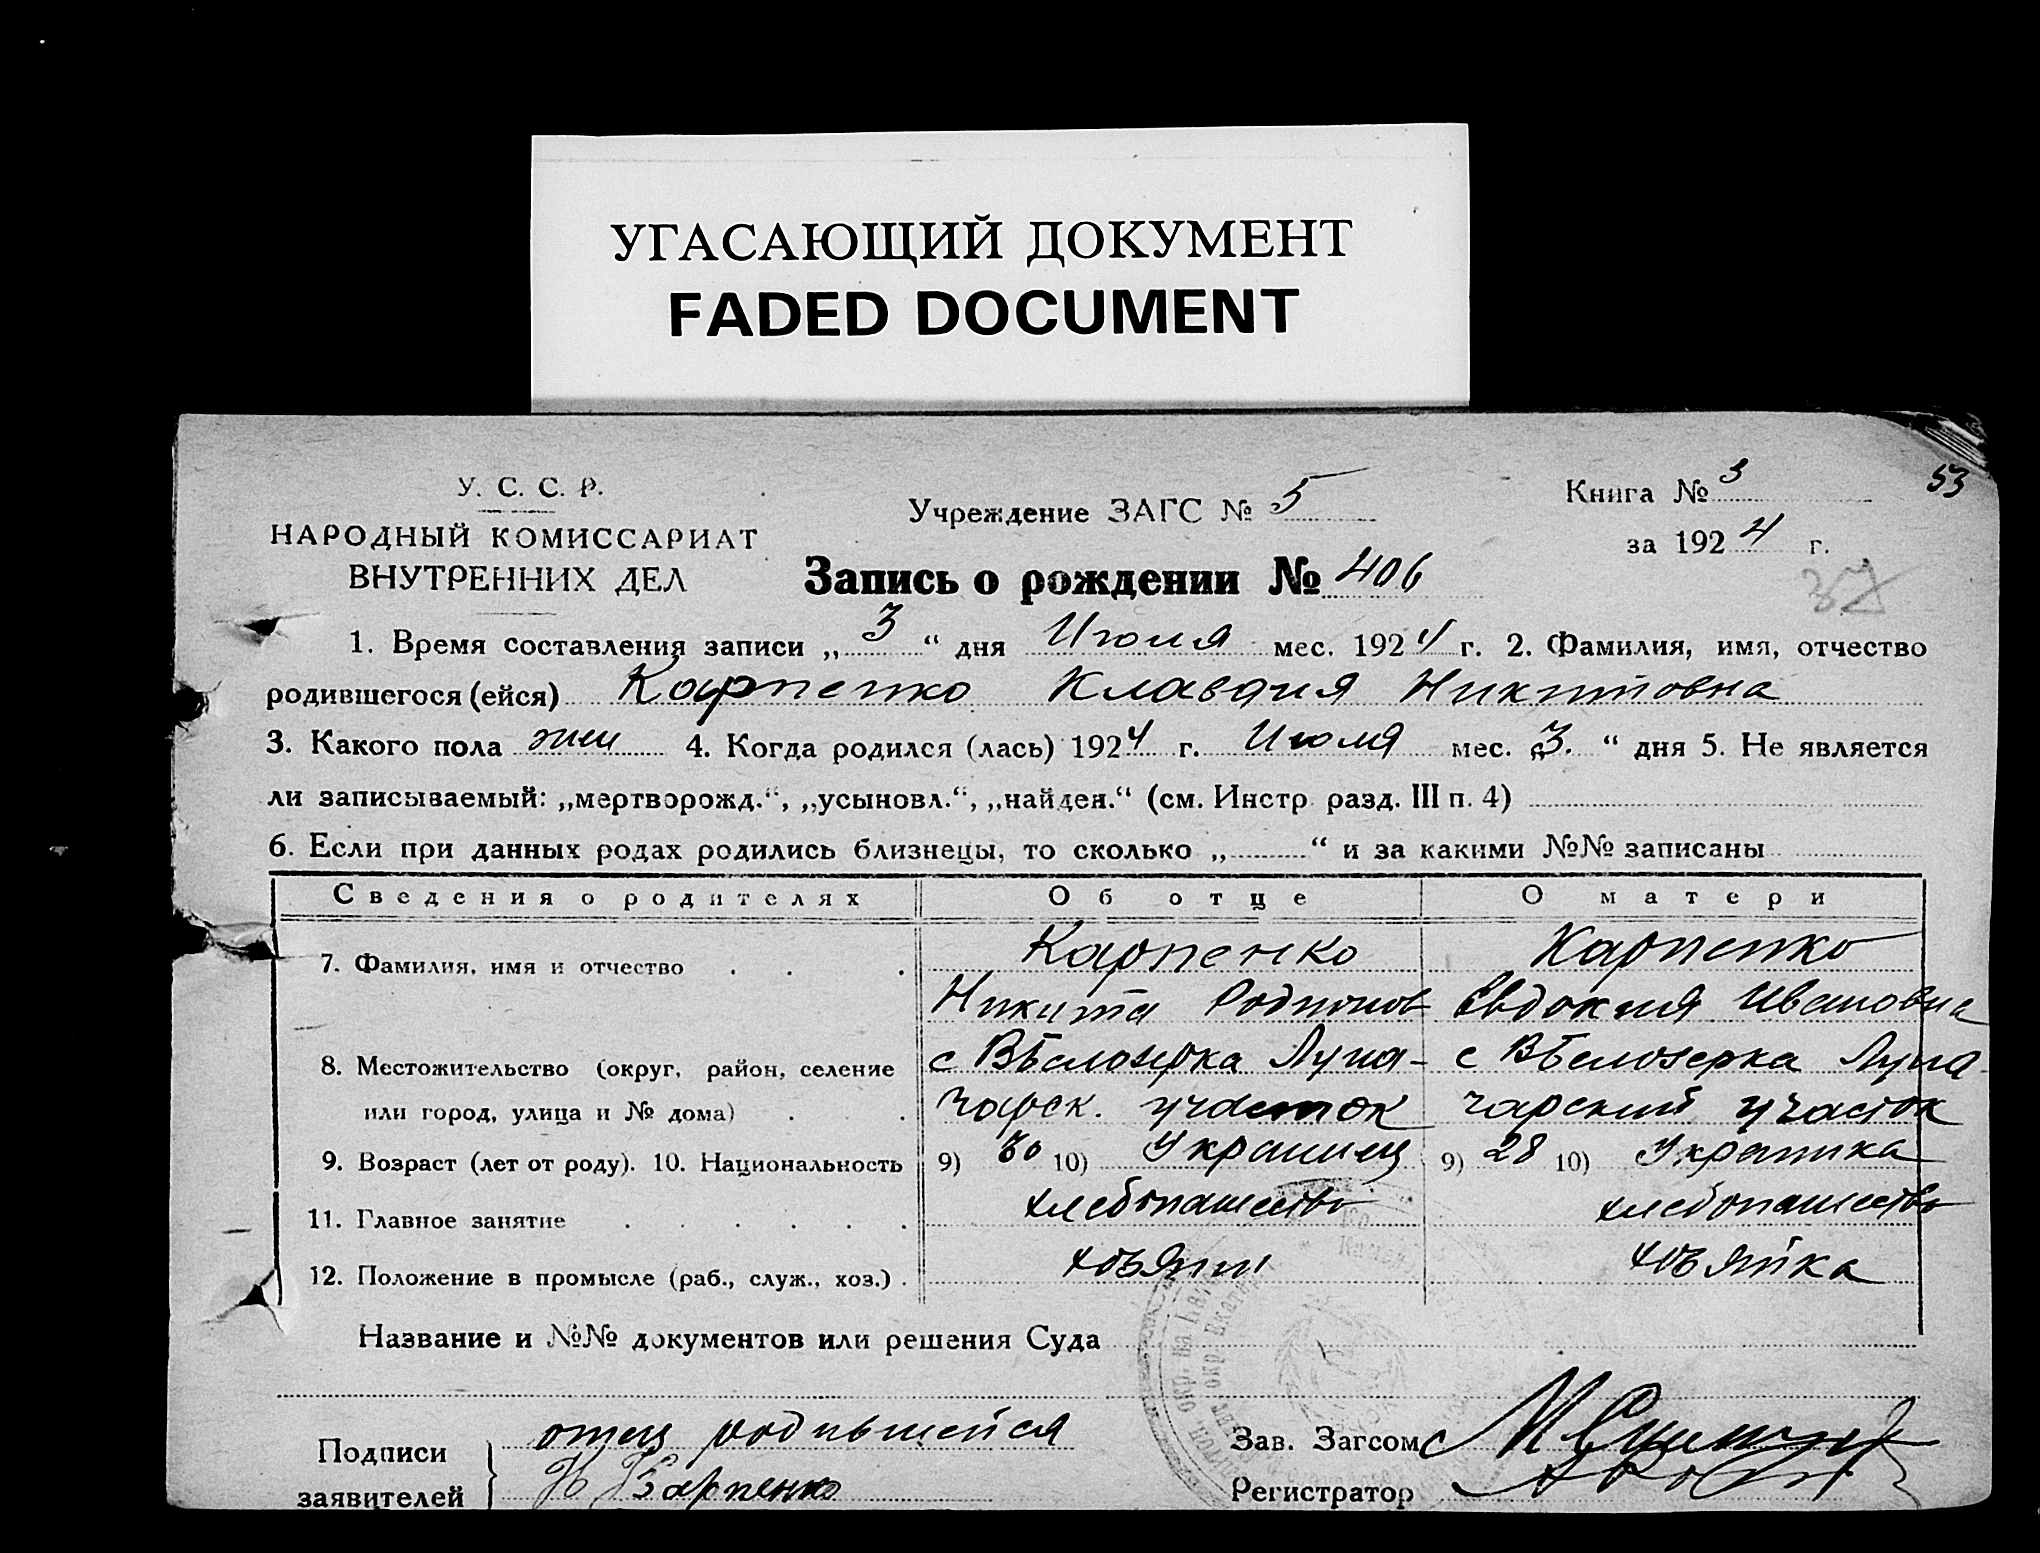 УГАСАЮЩИЙ ДОКУМЕНТ
FADED DOCUMENT
53
У. С. С. Р.
НАРОДНЫЙ КОМИССАРИАТ
ВНУТРЕННИХ ДЕЛ
Учреждение ЗАГС № 5
Книга № 3
за 1924 г.
Запись о рождении № 406
1. Время составления записи „3“ дня Июля мес. 1924 г. 2. Фамилия, имя, отчество
родившегося (ейся) Карпенко Клавдия Никитовна
3. Какого пола жен 4. Когда родился (лась) 1924 г. Июля мес. „3.“ дня 5. Не является
ли записываемый: „мертворожд.“, „усыновл.“, „найден.“ (см. Инстр. разд. III п. 4)
6. Если при данных родах родились близнецы, то сколько „ “ и за какими №№ записаны
Сведения о родителях Об отце О матери
7. Фамилия, имя и отчество Карпенко Карпенко
Никита Родионов Евдокия Ивановна
8. Местожительство (округ, район, селение с Вѣлозерка Луна- с Вѣлозерка Луна-
или город, улица и № дома) чарск. участок чарский участок
9. Возраст (лет от роду). 10. Национальность 9) 30 10) Украинец 9) 28 10) Украинка
11. Главное занятие хлебопашество хлебопашество
12. Положение в промысле (раб., служ., хоз.) хозяин хозяйка
Название и №№ документов или решения Суда
Подписи
заявителей
отец родившейся
Н Карпенко
Зав. Загсом
Регистратор